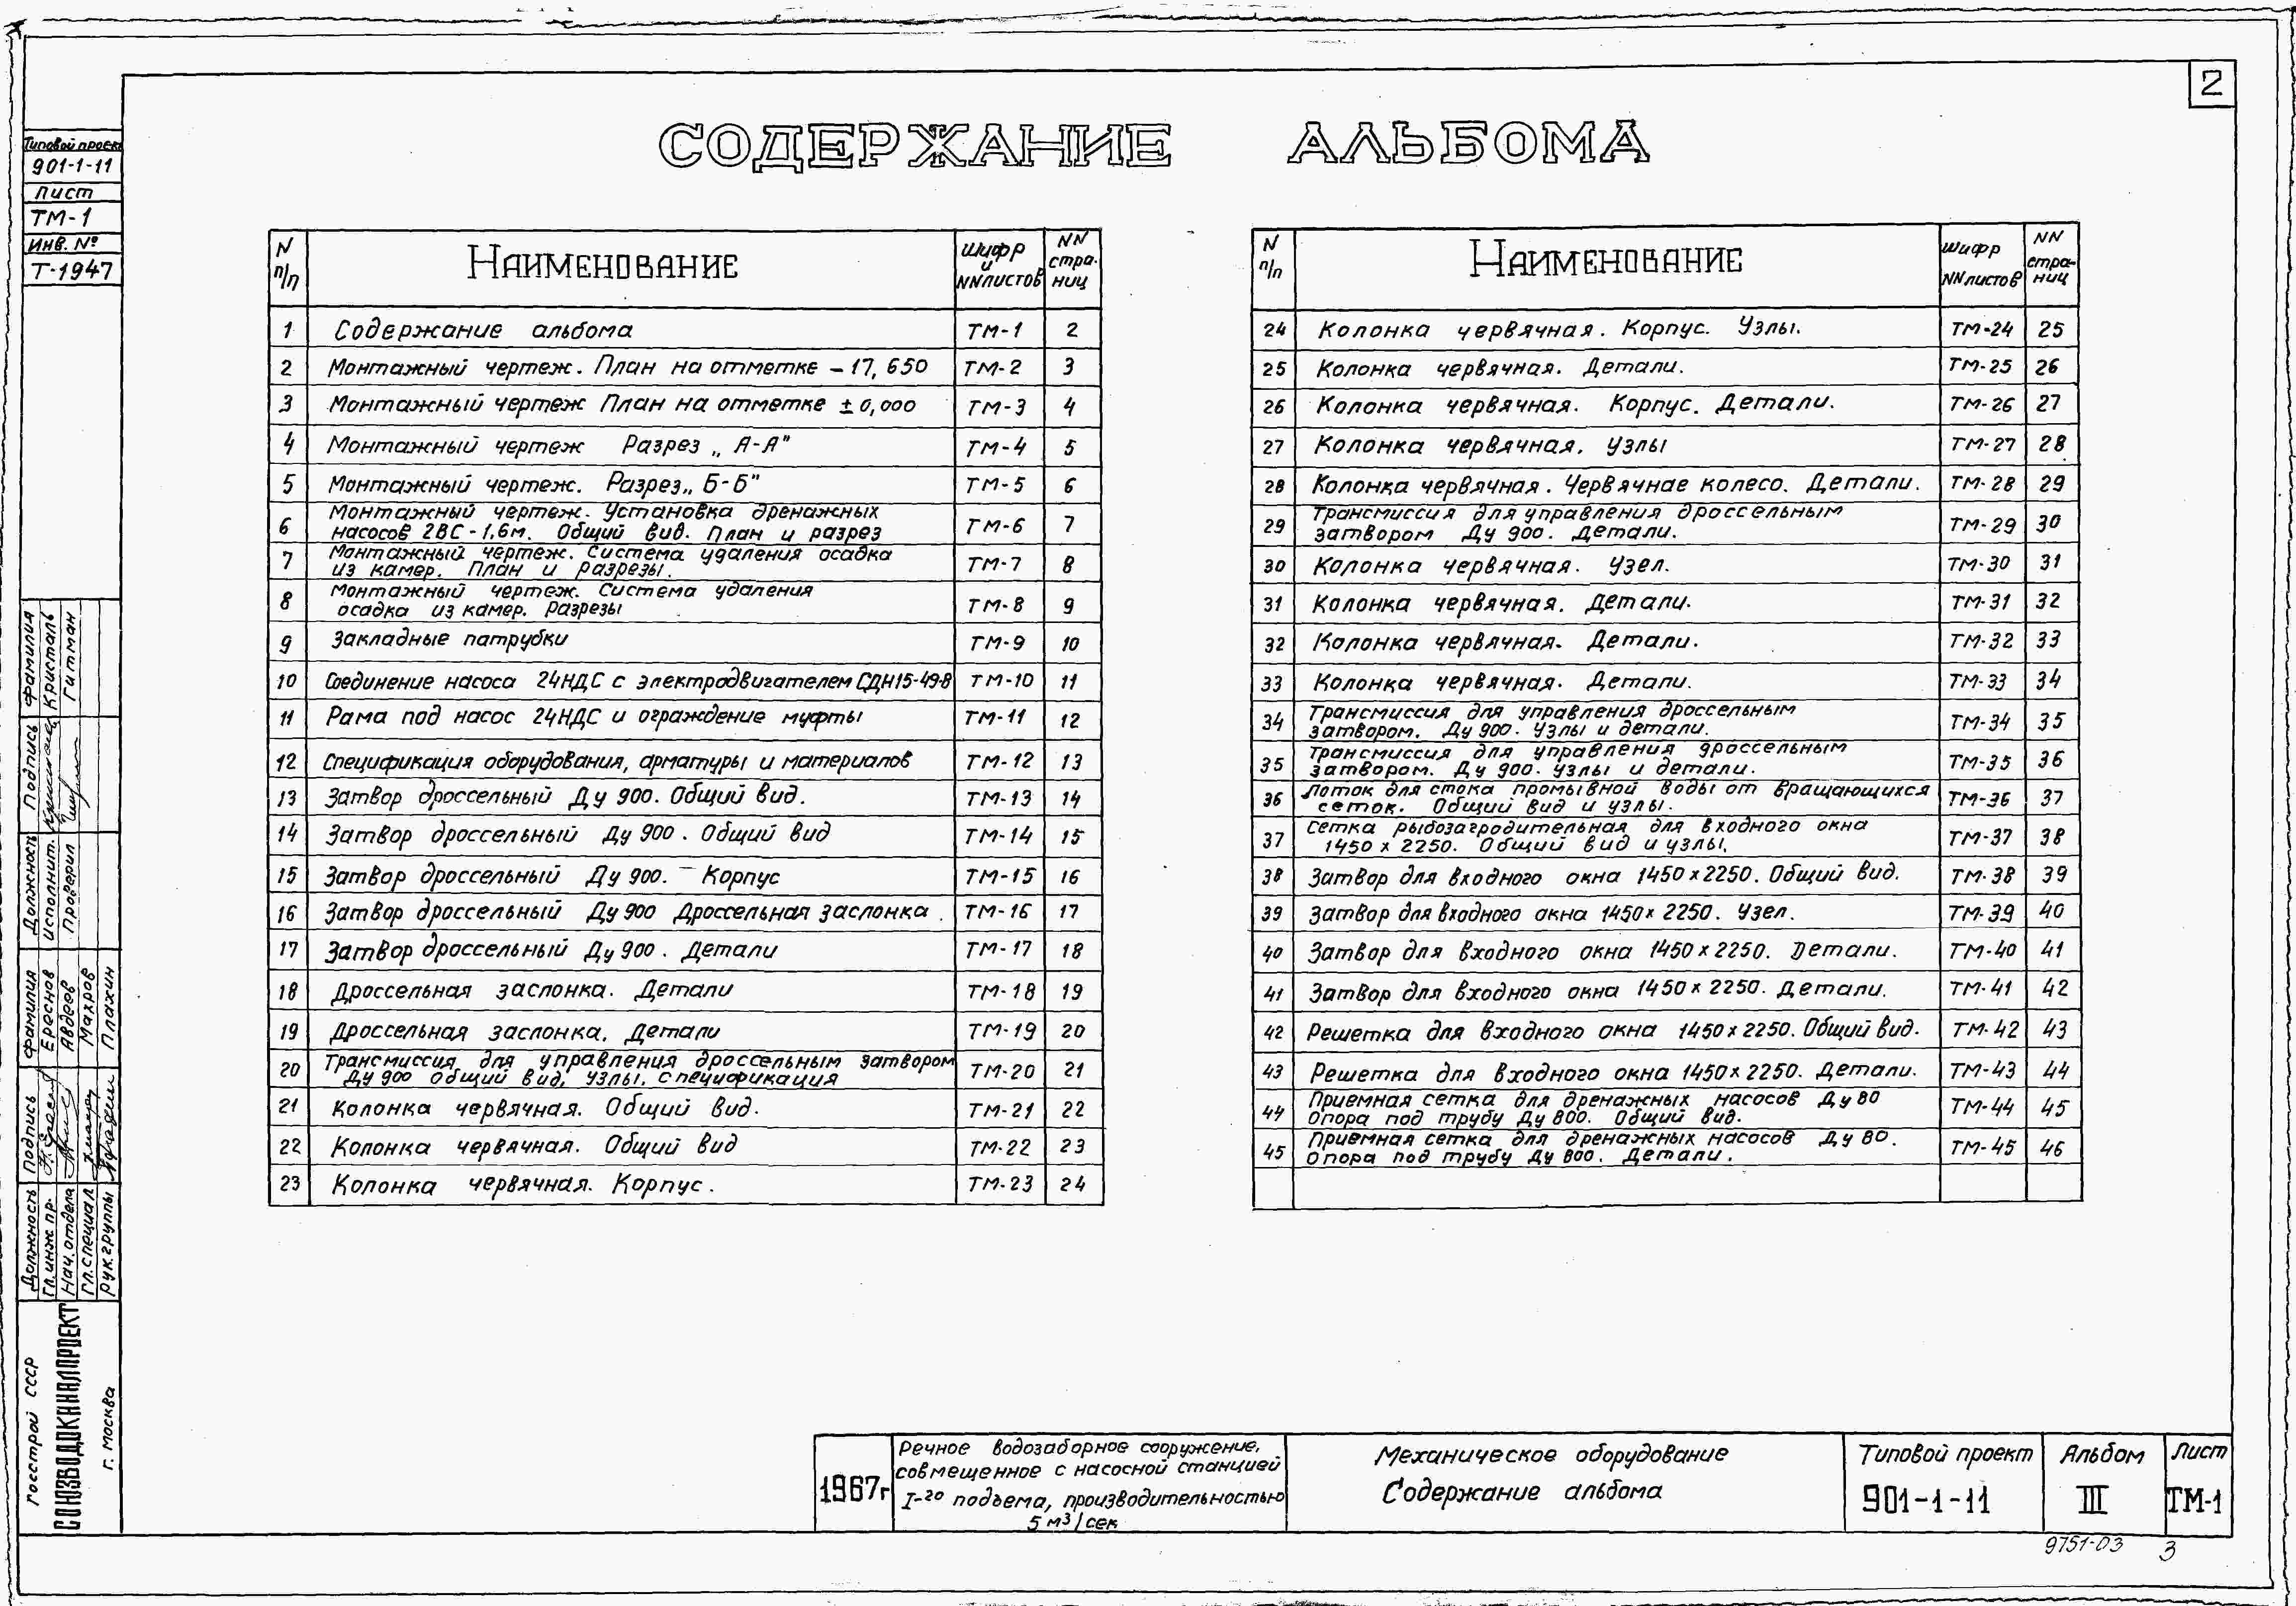 2
СОДЕРЖАНИЕ АЛЬБОМА
Типовой проект
901-1-11
Лист
ТМ-1
Инв. №
Т-1947
N п/п Наименование Шифр и NN листов NN страниц
1 Содержание альбома ТМ-1 2
2 Монтажный чертеж. План на отметке – 17,650 ТМ-2 3
3 Монтажный чертеж План на отметке ± 0,000 ТМ-3 4
4 Монтажный чертеж Разрез „А-А" ТМ-4 5
5 Монтажный чертеж. Разрез „Б-Б" ТМ-5 6
6 Монтажный чертеж. Установка дренажных
насосов 2ВС-1,6м. Общий вид. План и разрез ТМ-6 7
7 Монтажный чертеж. Система удаления осадка
из камер. План и разрезы. ТМ-7 8
8 Монтажный чертеж. Система удаления
осадка из камер. Разрезы ТМ-8 9
9 Закладные патрубки ТМ-9 10
10 Соединение насоса 24НДС с электродвигателем СДН15-49-8 ТМ-10 11
11 Рама под насос 24НДС и ограждение муфты ТМ-11 12
12 Спецификация оборудования, арматуры и материалов ТМ-12 13
13 Затвор дроссельный Ду 900. Общий вид. ТМ-13 14
14 Затвор дроссельный Ду 900. Общий вид ТМ-14 15
15 Затвор дроссельный Ду 900. – Корпус ТМ-15 16
16 Затвор дроссельный Ду 900 Дроссельная заслонка. ТМ-16 17
17 Затвор дроссельный Ду 900. Детали ТМ-17 18
18 Дроссельная заслонка. Детали ТМ-18 19
19 Дроссельная заслонка. Детали ТМ-19 20
20 Трансмиссия для управления дроссельным затвором
Ду 900 общий вид, узлы, спецификация ТМ-20 21
21 Колонка червячная. Общий вид. ТМ-21 22
22 Колонка червячная. Общий вид ТМ-22 23
23 Колонка червячная. Корпус. ТМ-23 24
N п/п Наименование Шифр NN листов NN страниц
24 Колонка червячная. Корпус. Узлы. ТМ-24 25
25 Колонка червячная. Детали. ТМ-25 26
26 Колонка червячная. Корпус. Детали. ТМ-26 27
27 Колонка червячная. Узлы ТМ-27 28
28 Колонка червячная. Червячнае колесо. Детали. ТМ-28 29
29 Трансмиссия для управления дроссельным
затвором Ду 900. Детали. ТМ-29 30
30 Колонка червячная. Узел. ТМ-30 31
31 Колонка червячная. Детали. ТМ-31 32
32 Колонка червячная. Детали. ТМ-32 33
33 Колонка червячная. Детали. ТМ-33 34
34 Трансмиссия для управления дроссельным
затвором. Ду 900. Узлы и детали. ТМ-34 35
35 Трансмиссия для управления дроссельным
затвором. Ду 900. Узлы и детали. ТМ-35 36
36 Лоток для стока промывной воды от вращающихся
сеток. Общий вид и узлы. ТМ-36 37
37 Сетка рыбозагродительная для входного окна
1450 х 2250. Общий вид и узлы. ТМ-37 38
38 Затвор для входного окна 1450х2250. Общий вид. ТМ-38 39
39 Затвор для входного окна 1450х2250. Узел. ТМ-39 40
40 Затвор для входного окна 1450х2250. Детали. ТМ-40 41
41 Затвор для входного окна 1450х2250. Детали. ТМ-41 42
42 Решетка для входного окна 1450х2250. Общий вид. ТМ-42 43
43 Решетка для входного окна 1450х2250. Детали. ТМ-43 44
44 Приемная сетка для дренажных насосов Ду 80
Опора под трубу Ду 800. Общий вид. ТМ-44 45
45 Приемная сетка для дренажных насосов Ду 80.
Опора под трубу Ду 800. Детали. ТМ-45 46
Должность Подпись Фамилия
Исполнит. Кристаль
Проверил Гитман
Должность Подпись Фамилия
Гл. инж пр. Ереснов
Нач. отдела Авдеев
Гл. специал Махров
Рук. группы Плахин
Госстрой СССР
СОЮЗВОДОКАНАЛПРОЕКТ
г. Москва
1967г
Речное водозаборное сооружение,
совмещенное с насосной станцией
I-го подъема, производительностью
5 м3/сек
Механическое оборудование
Содержание альбома
Типовой проект
901-1-11
Альбом
III
Лист
ТМ-1
9751-03 3